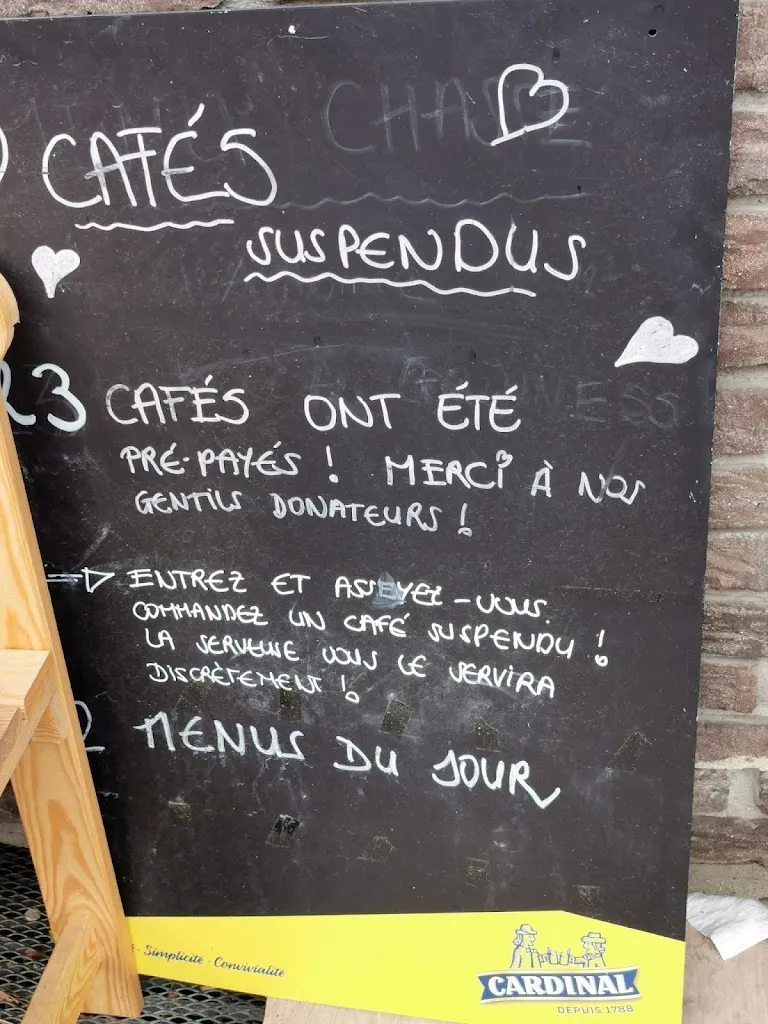 CAFÉS
SUSPENDUS
23 CAFÉS ONT ÉTÉ
PRÉ-PAYÉS ! MERCI À NOS
GENTILS DONATEURS !
⇒ ENTREZ ET ASSEYEZ-VOUS.
COMMANDEZ UN CAFÉ SUSPENDU !
LA SERVEUSE VOUS LE SERVIRA
DISCRÈTEMENT !
2 MENUS DU JOUR
- Simplicité - Convivialité
CARDINAL
DEPUIS 1788